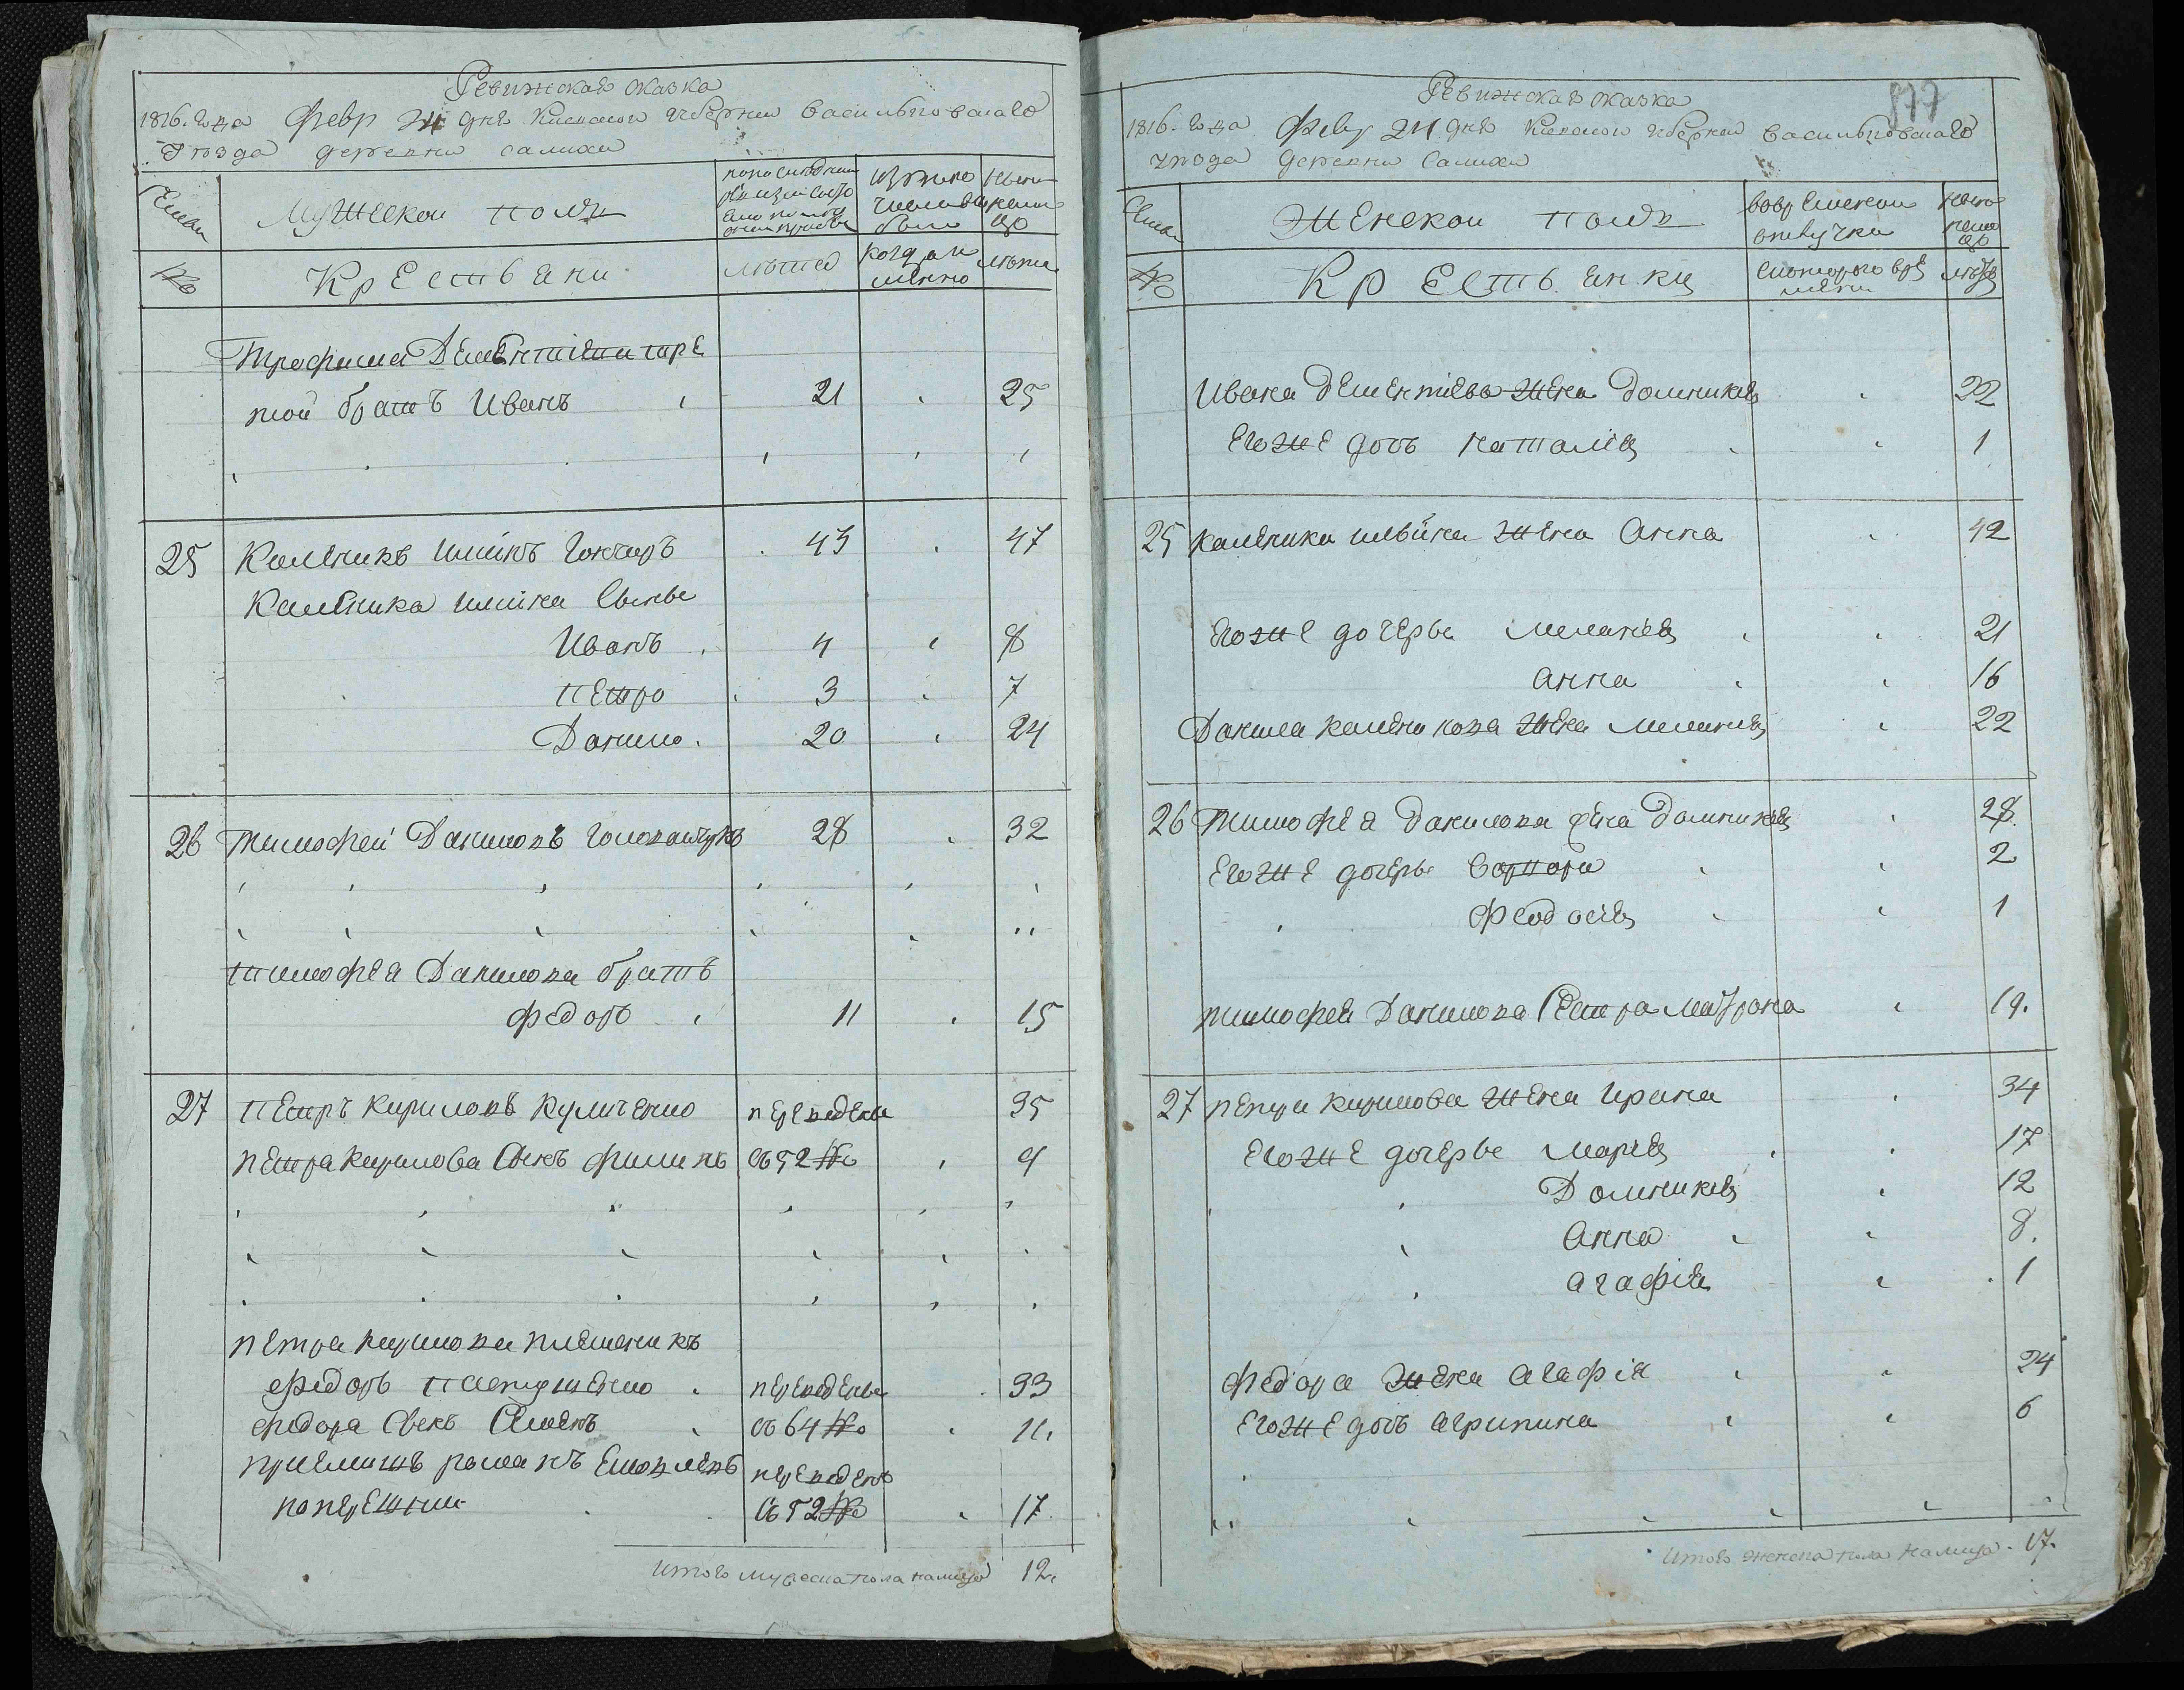 Ревижская сказка
1816. года Февр 24 дня Киевской губернии Васильковскаго
Уезда деревни Салихи
Семьи
Мужескои полъ
попоследнеи ревизии состо
изтого числа выбыло
ныне налицо
№
Крестьяни
лѣта
когда именно
лѣта
Трофима Дементіева тре
той братъ Иванъ 21 25
25 Каленикъ Ильинъ Гончаръ 43 47
Каленика Ильина Сыновья
Иванъ 4 8
Петро 3 7
Данило 20 24
26 Тимофей Даниловъ 28 32
Тимофея Данилова братъ
Федоръ 11 15
27 Петръ Кириловъ Куличенко переведены 35
Петра Кирилова Сынъ Филипъ съ 52 № 9
Петра Кирилова племеникъ
Федоръ переведены 33
Федора Сынъ Семенъ съ 64 № 11.
Приемишъ Романъ переведенъ
съ 52 № 17.
Итого мужеска пола налицо 12.
877
Ревижская сказка
1816. года Февр 24 дня Киевской губернии Васильковскаго
Уезда деревни Салихи
Семьи
Женскои полъ
вовременной отлучки
ныне налицо
№
Крестьянки
скоторого времени
лѣта
Ивана Дементіева жена Домникія 22
Егоже дочь Наталія 1
25 Каленика Ильина жена Анна 42
Егоже дочерьи Меланія 21
Анна 16
Данила Каленикова жена Меланія 22
26 Тимофея Данилова жена Домникія 28.
Егоже дочерье Варвара 2
Феодосія 1
Тимофея Данилова Сестра Матрона 19.
27 Петра Кирилова жена Ирина 34
Егоже дочерье Марія 17
Домникія 12
Анна 8.
Агафія 1
Федора жена Агафія 24
Егоже дочь Агрипина 6
Итого женска пола налицо. 17.